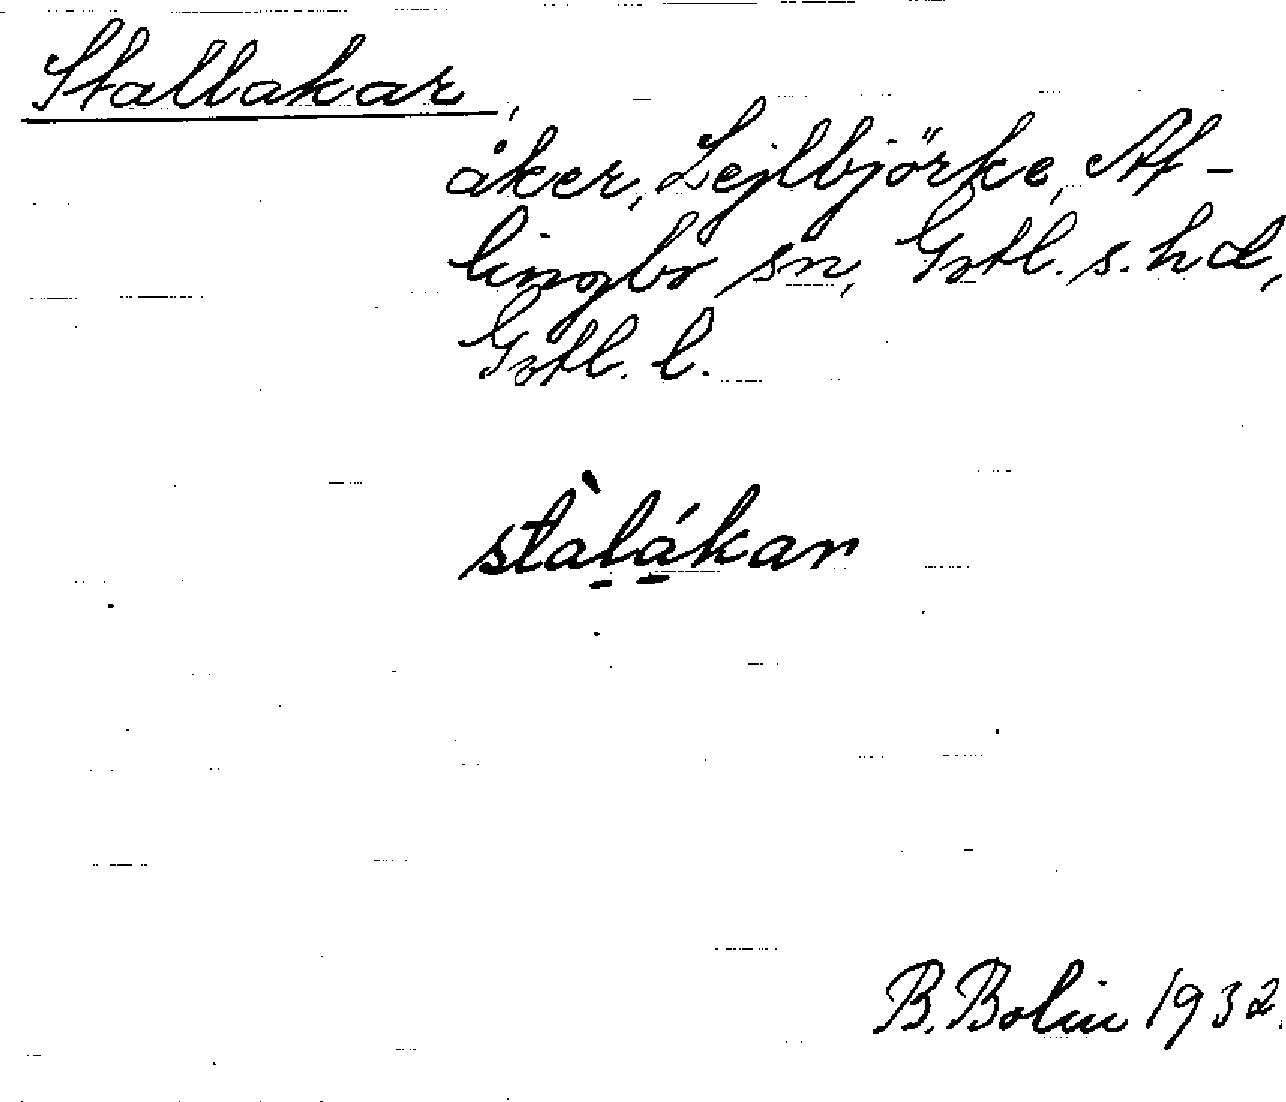 Stallakar,
åker, Lejlbjörke, At-
lingbo sn, Gotl. s. hd,
Gotl. l.
stàlákar
B. Bolin 1932.